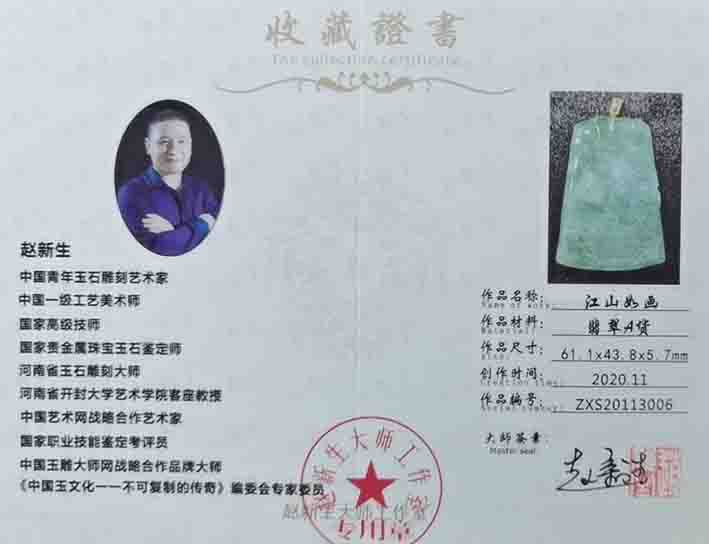 收藏證書
The collection certificate
赵新生
中国青年玉石雕刻艺术家
中国一级工艺美术师
国家高级技师
国家贵金属珠宝玉石鉴定师
河南省玉石雕刻大师
河南省开封大学艺术学院客座教授
中国艺术网战略合作艺术家
国家职业技能鉴定考评员
中国玉雕大师网战略合作品牌大师
《中国玉文化——不可复制的传奇》编委会专家委员
赵新生大师工作室
专用章
赵新生大师工作室
作品名称: 江山如画
Name of work:
作品材料: 翡翠A货
Material:
作品尺寸: 61.1x43.8x5.7mm
Size:
创作时间: 2020.11
Creation time:
作品编号: ZXS20113006
大师签章:
Master seal:
赵新生